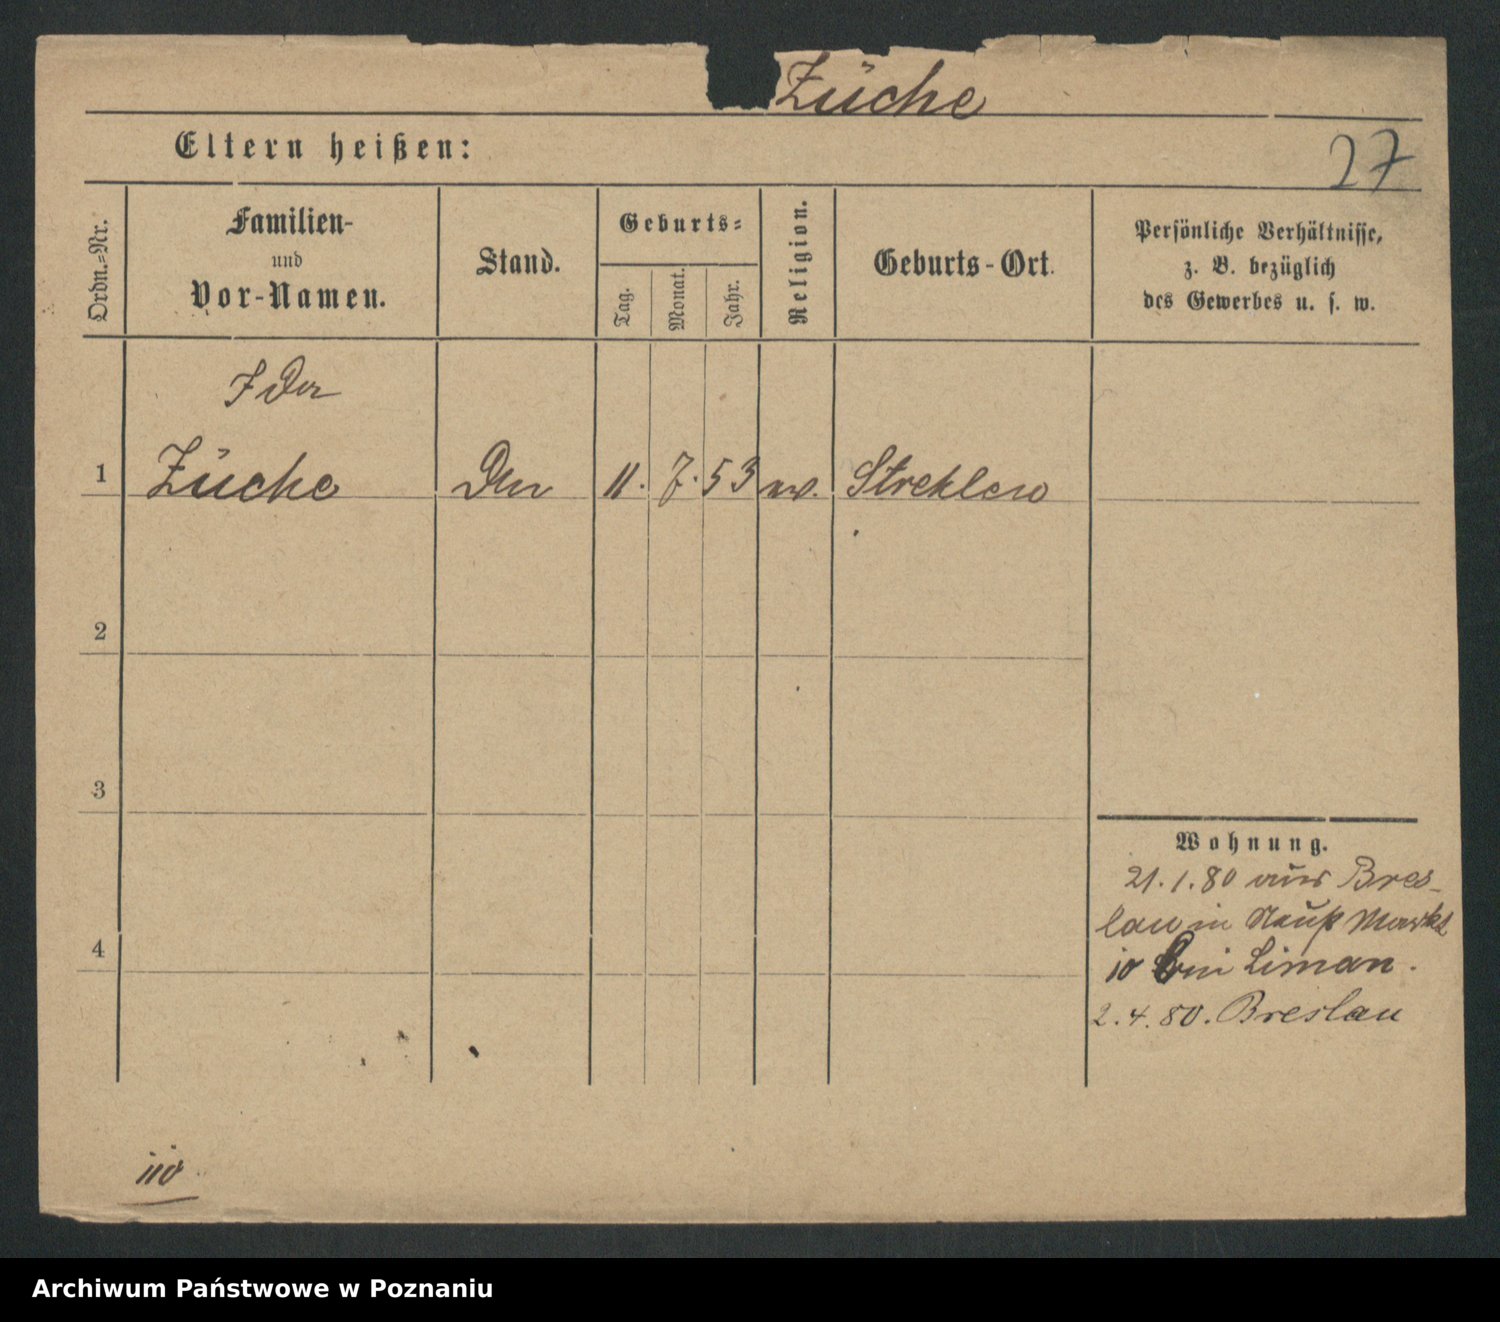 Züche
Eltern heißen:
27
Ordn.=Nr.
Familien-
und
Vor-Namen.
Stand.
Geburts=
Tag.
Monat.
Jahr.
Religion.
Geburts-Ort.
Persönliche Verhältnisse,
z. B. bezüglich
des Gewerbes u. s. w.
Ida
1 Züche 11. 7. 53 Strehlen
2
3
4
Wohnung.
21.1.80 aus Bres-
lau in Markt
10 bei Liman.
2.4.80. Breslau
Archiwum Państwowe w Poznaniu